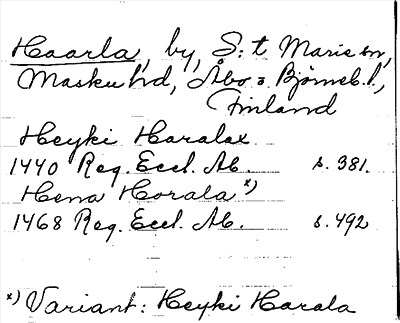 Haarla, by, S:t Marie sn,
Masku hd, Åbo o Björneb. l.,
Finland
Heyki Haralax
1440 Reg. Eccl. Ab. s. 381.
Hena Horala x)
1468 Reg. Eccl. Ab. s. 492
x) Variant: Heyki Harala